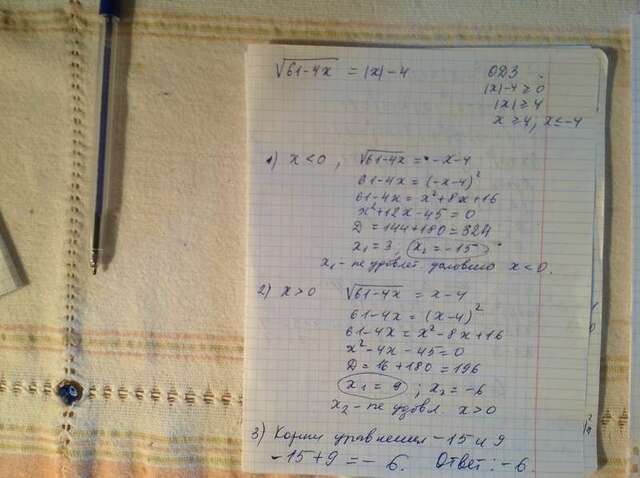 √61-4x = |x|-4 ОДЗ:
|x|-4 ≥ 0
|x| ≥ 4
x ≥ 4, x ≤ -4
1) x < 0, √61-4x = -x-4
61-4x = (-x-4)²
61-4x = x²+8x+16
x²+12x-45 = 0
D = 144+180 = 324
x₁ = 3, x₂ = -15
x₁ - не удовл. условию x < 0.
2) x > 0 √61-4x = x-4
61-4x = (x-4)²
61-4x = x²-8x+16
x²-4x-45 = 0
D = 16+180 = 196
x₁ = 9; x₂ = -6
x₂ - не удовл x > 0
3) Корни уравнения -15 и 9
-15+9 = -6. Ответ: -6